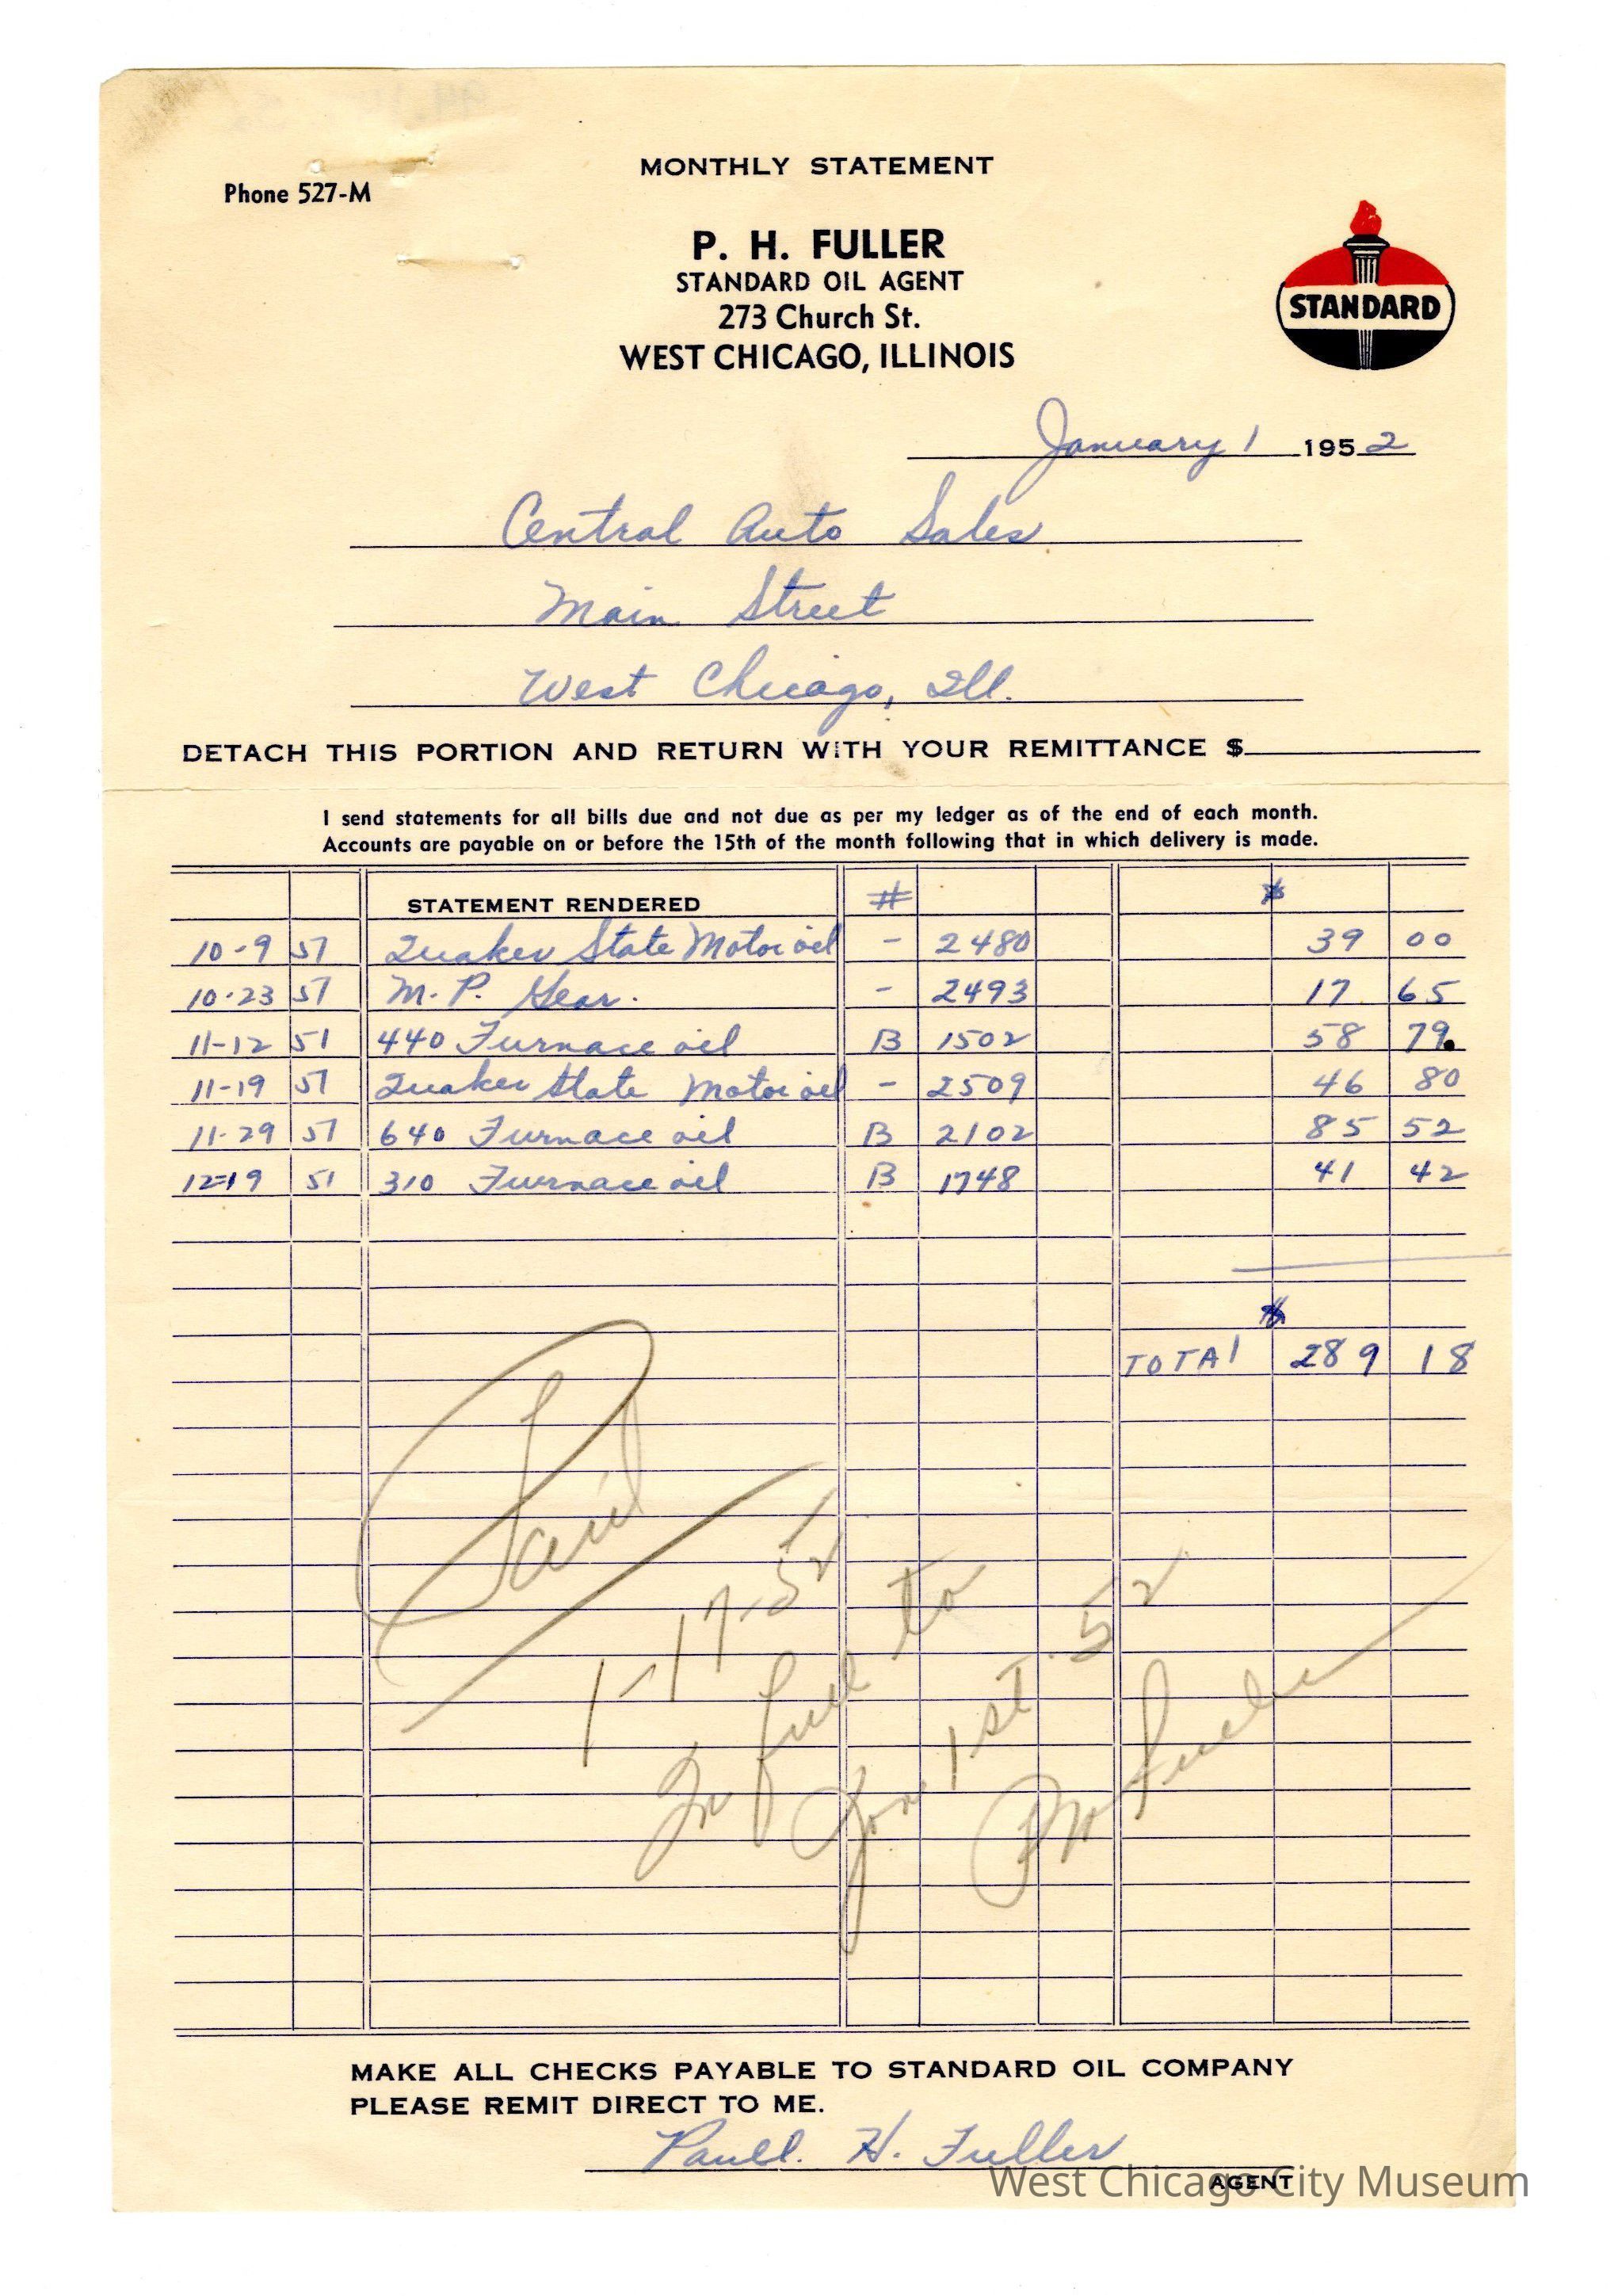 MONTHLY STATEMENT
Phone 527-M
P. H. FULLER
STANDARD OIL AGENT
273 Church St.
WEST CHICAGO, ILLINOIS
STANDARD
January 1 1952
Central Auto Sales
Main Street
West Chicago, Ill.
DETACH THIS PORTION AND RETURN WITH YOUR REMITTANCE $
I send statements for all bills due and not due as per my ledger as of the end of each month.
Accounts are payable on or before the 15th of the month following that in which delivery is made.
STATEMENT RENDERED # $
10-9 51 Quaker State Motor oil - 2480 39 00
10-23 51 M.P. Gear. - 2493 17 65
11-12 51 440 Furnace oil B 1502 58 79
11-19 51 Quaker State Motor oil - 2509 46 80
11-29 51 640 Furnace oil B 2102 85 52
12-19 51 310 Furnace oil B 1748 41 42
$
TOTAL 289 18
Paid
1-17-52
In full to
Jan 1st. 52
PH Fuller
MAKE ALL CHECKS PAYABLE TO STANDARD OIL COMPANY
PLEASE REMIT DIRECT TO ME.
Paull. H. Fuller
AGENT
West Chicago City Museum